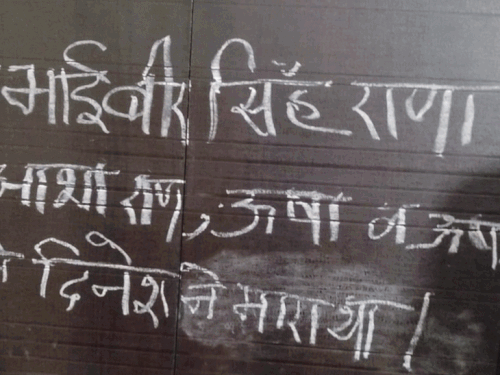 माईवीर सिंह राणा
आशा राणा, ऊषा व ऊषा
दिनेश ने मारा था।